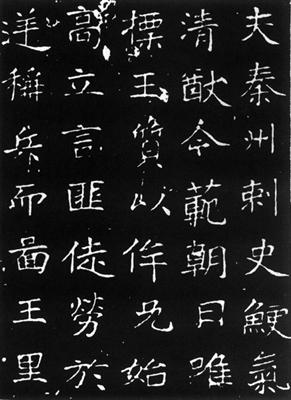 夫秦州刺史鯁氣
清猷令範朝日唯
摽王質以侔始
高立言匪徒勞於
逆稱兵而啚王里